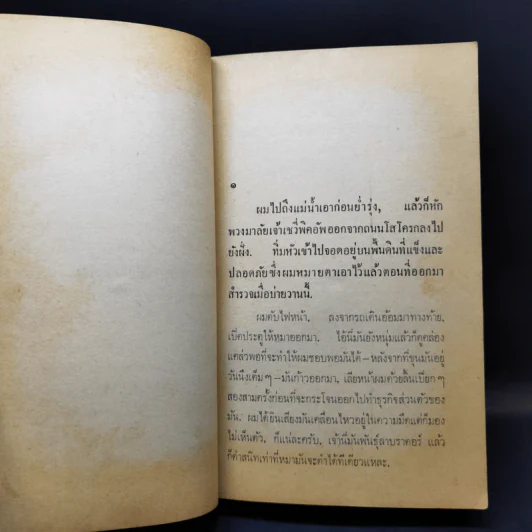 ๑
ผมไปถึงแม่น้ำเอาก่อนย่ำรุ่ง, แล้วก็หัก
พวงมาลัยเจ้าเชวี่พิคอัพออกจากถนนโสโครกลงไป
ยังฝั่ง. ทิ่มหัวเข้าไปจอดอยู่บนพื้นดินที่แข็งและ
ปลอดภัยซึ่งผมหมายตาเอาไว้แล้วตอนที่ออกมา
สำรวจเมื่อบ่ายวานนี้.
ผมดับไฟหน้า, ลงจากรถเดินอ้อมมาทางท้าย,
เปิดประตูให้หมาออกมา. ไอ้นี่มันยังหนุ่มแล้วก็ดูคล่อง
แคล่วพอที่จะทำให้ผมชอบพอมันได้—หลังจากที่ขุนมันอยู่
วันนึงเต็มๆ—มันก้าวออกมา, เลียหน้าผมด้วยลิ้นเปียกๆ
สองสามครั้งก่อนที่จะกระโจนออกไปทำธุรกิจส่วนตัวของ
มัน. ผมได้ยินเสียงมันเคลื่อนไหวอยู่ในความมืดแต่ก็มอง
ไม่เห็นตัว. ก็แน่ละครับ, เจ้านี่มันพันธุ์ลาบราดอร์ แล้ว
ก็ดำสนิทเท่าที่หมามันจะดำได้ทีเดียวแหละ.